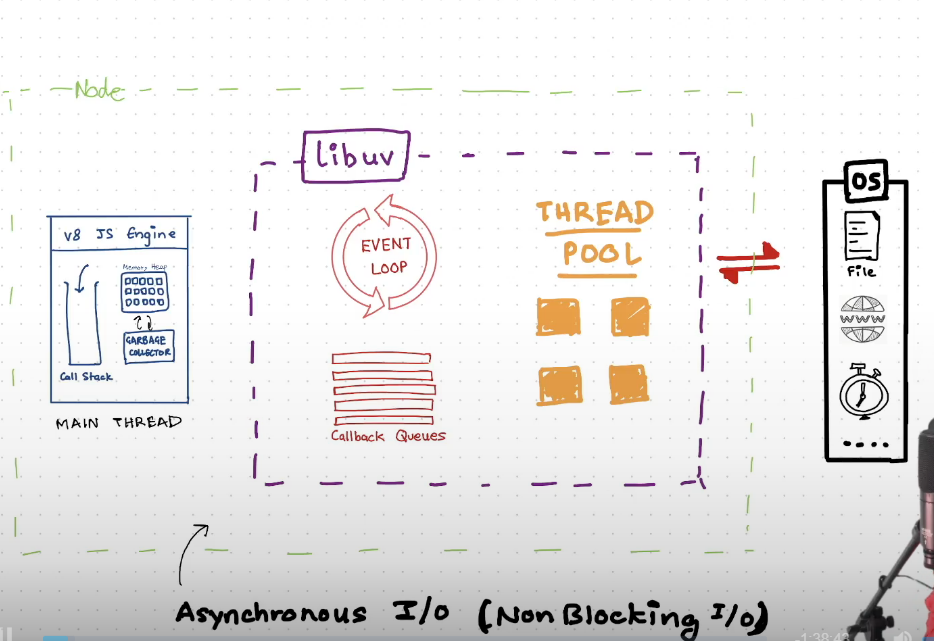 Node
libuv
OS
V8 JS Engine
Memory Heap
GARBAGE
COLLECTOR
Call Stack
MAIN THREAD
EVENT
LOOP
Callback Queues
THREAD
POOL
File
WWW
Asynchronous I/O (Non Blocking I/O)
-1:38:42